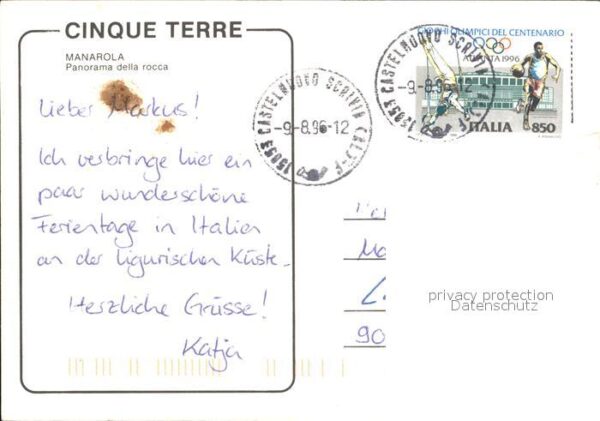 CINQUE TERRE
MANAROLA
Panorama della rocca
Lieber Markus!
Ich verbringe hier ein
paar wunderschöne
Ferientage in Italien
an der ligurischen Küste.
Herzliche Grüsse!
Katja
15053 CASTELNUOVO SCRIVIA (AL)
-9-8-96-12
GIOCHI OLIMPICI DEL CENTENARIO
ATLANTA 1996
ITALIA 850
15053 CASTELNUOVO SCRIVIA
-9-8-96-12
90
privacy protection
Datenschutz